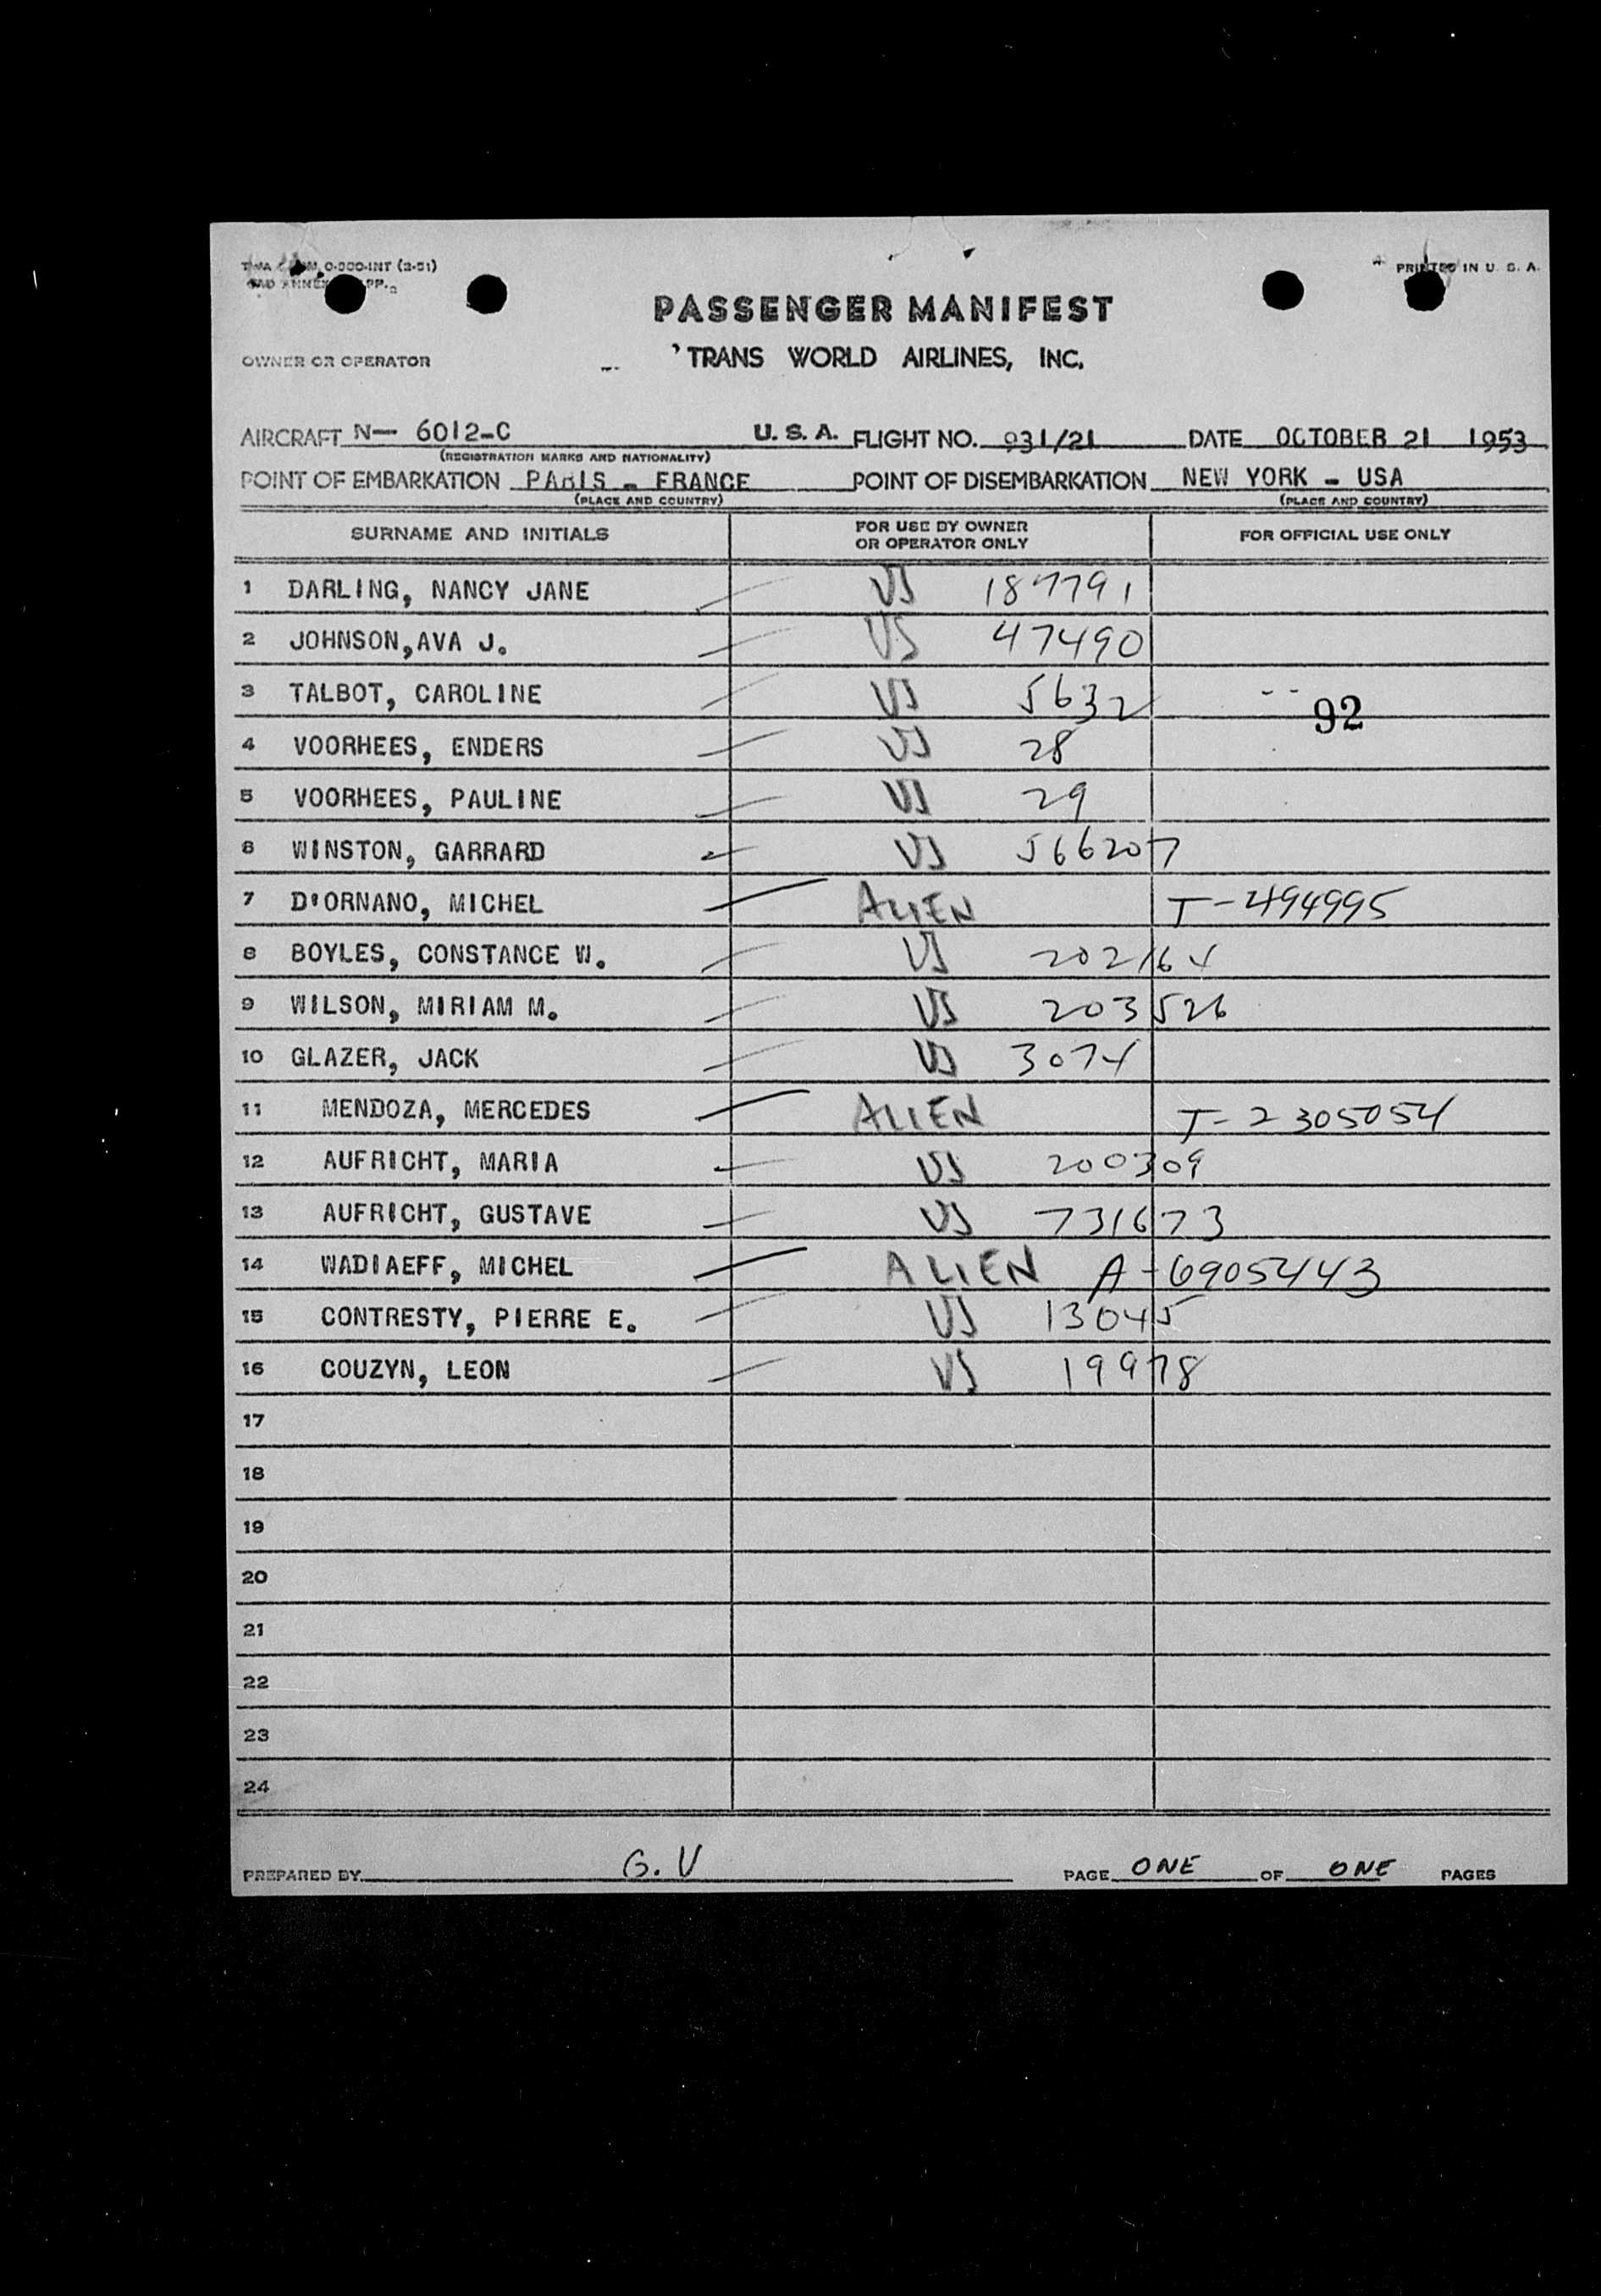 TWA FORM 0-300-INT (2-51)
PRINTED IN U. S. A.
CAB ANNEX APP.
PASSENGER MANIFEST
OWNER OR OPERATOR TRANS WORLD AIRLINES, INC.
AIRCRAFT N- 6012-C U. S. A. FLIGHT NO. 931/21 DATE OCTOBER 21 1953
(REGISTRATION MARKS AND NATIONALITY)
POINT OF EMBARKATION PARIS - FRANCE POINT OF DISEMBARKATION NEW YORK - USA
(PLACE AND COUNTRY) (PLACE AND COUNTRY)
SURNAME AND INITIALS FOR USE BY OWNER OR OPERATOR ONLY FOR OFFICIAL USE ONLY
1 DARLING, NANCY JANE US 187791
2 JOHNSON,AVA J. US 47490
3 TALBOT, CAROLINE US 5632
92
4 VOORHEES, ENDERS US 28
5 VOORHEES, PAULINE US 29
6 WINSTON, GARRARD US 566207
7 D'ORNANO, MICHEL ALIEN T-494995
8 BOYLES, CONSTANCE W. US 202164
9 WILSON, MIRIAM M. US 203526
10 GLAZER, JACK US 3074
11 MENDOZA, MERCEDES ALIEN T-2305054
12 AUFRICHT, MARIA US 200309
13 AUFRICHT, GUSTAVE US 731673
14 WADIAEFF, MICHEL ALIEN A-6905443
15 CONTRESTY, PIERRE E. US 13045
16 COUZYN, LEON US 19978
17
18
19
20
21
22
23
24
PREPARED BY G. V PAGE ONE OF ONE PAGES